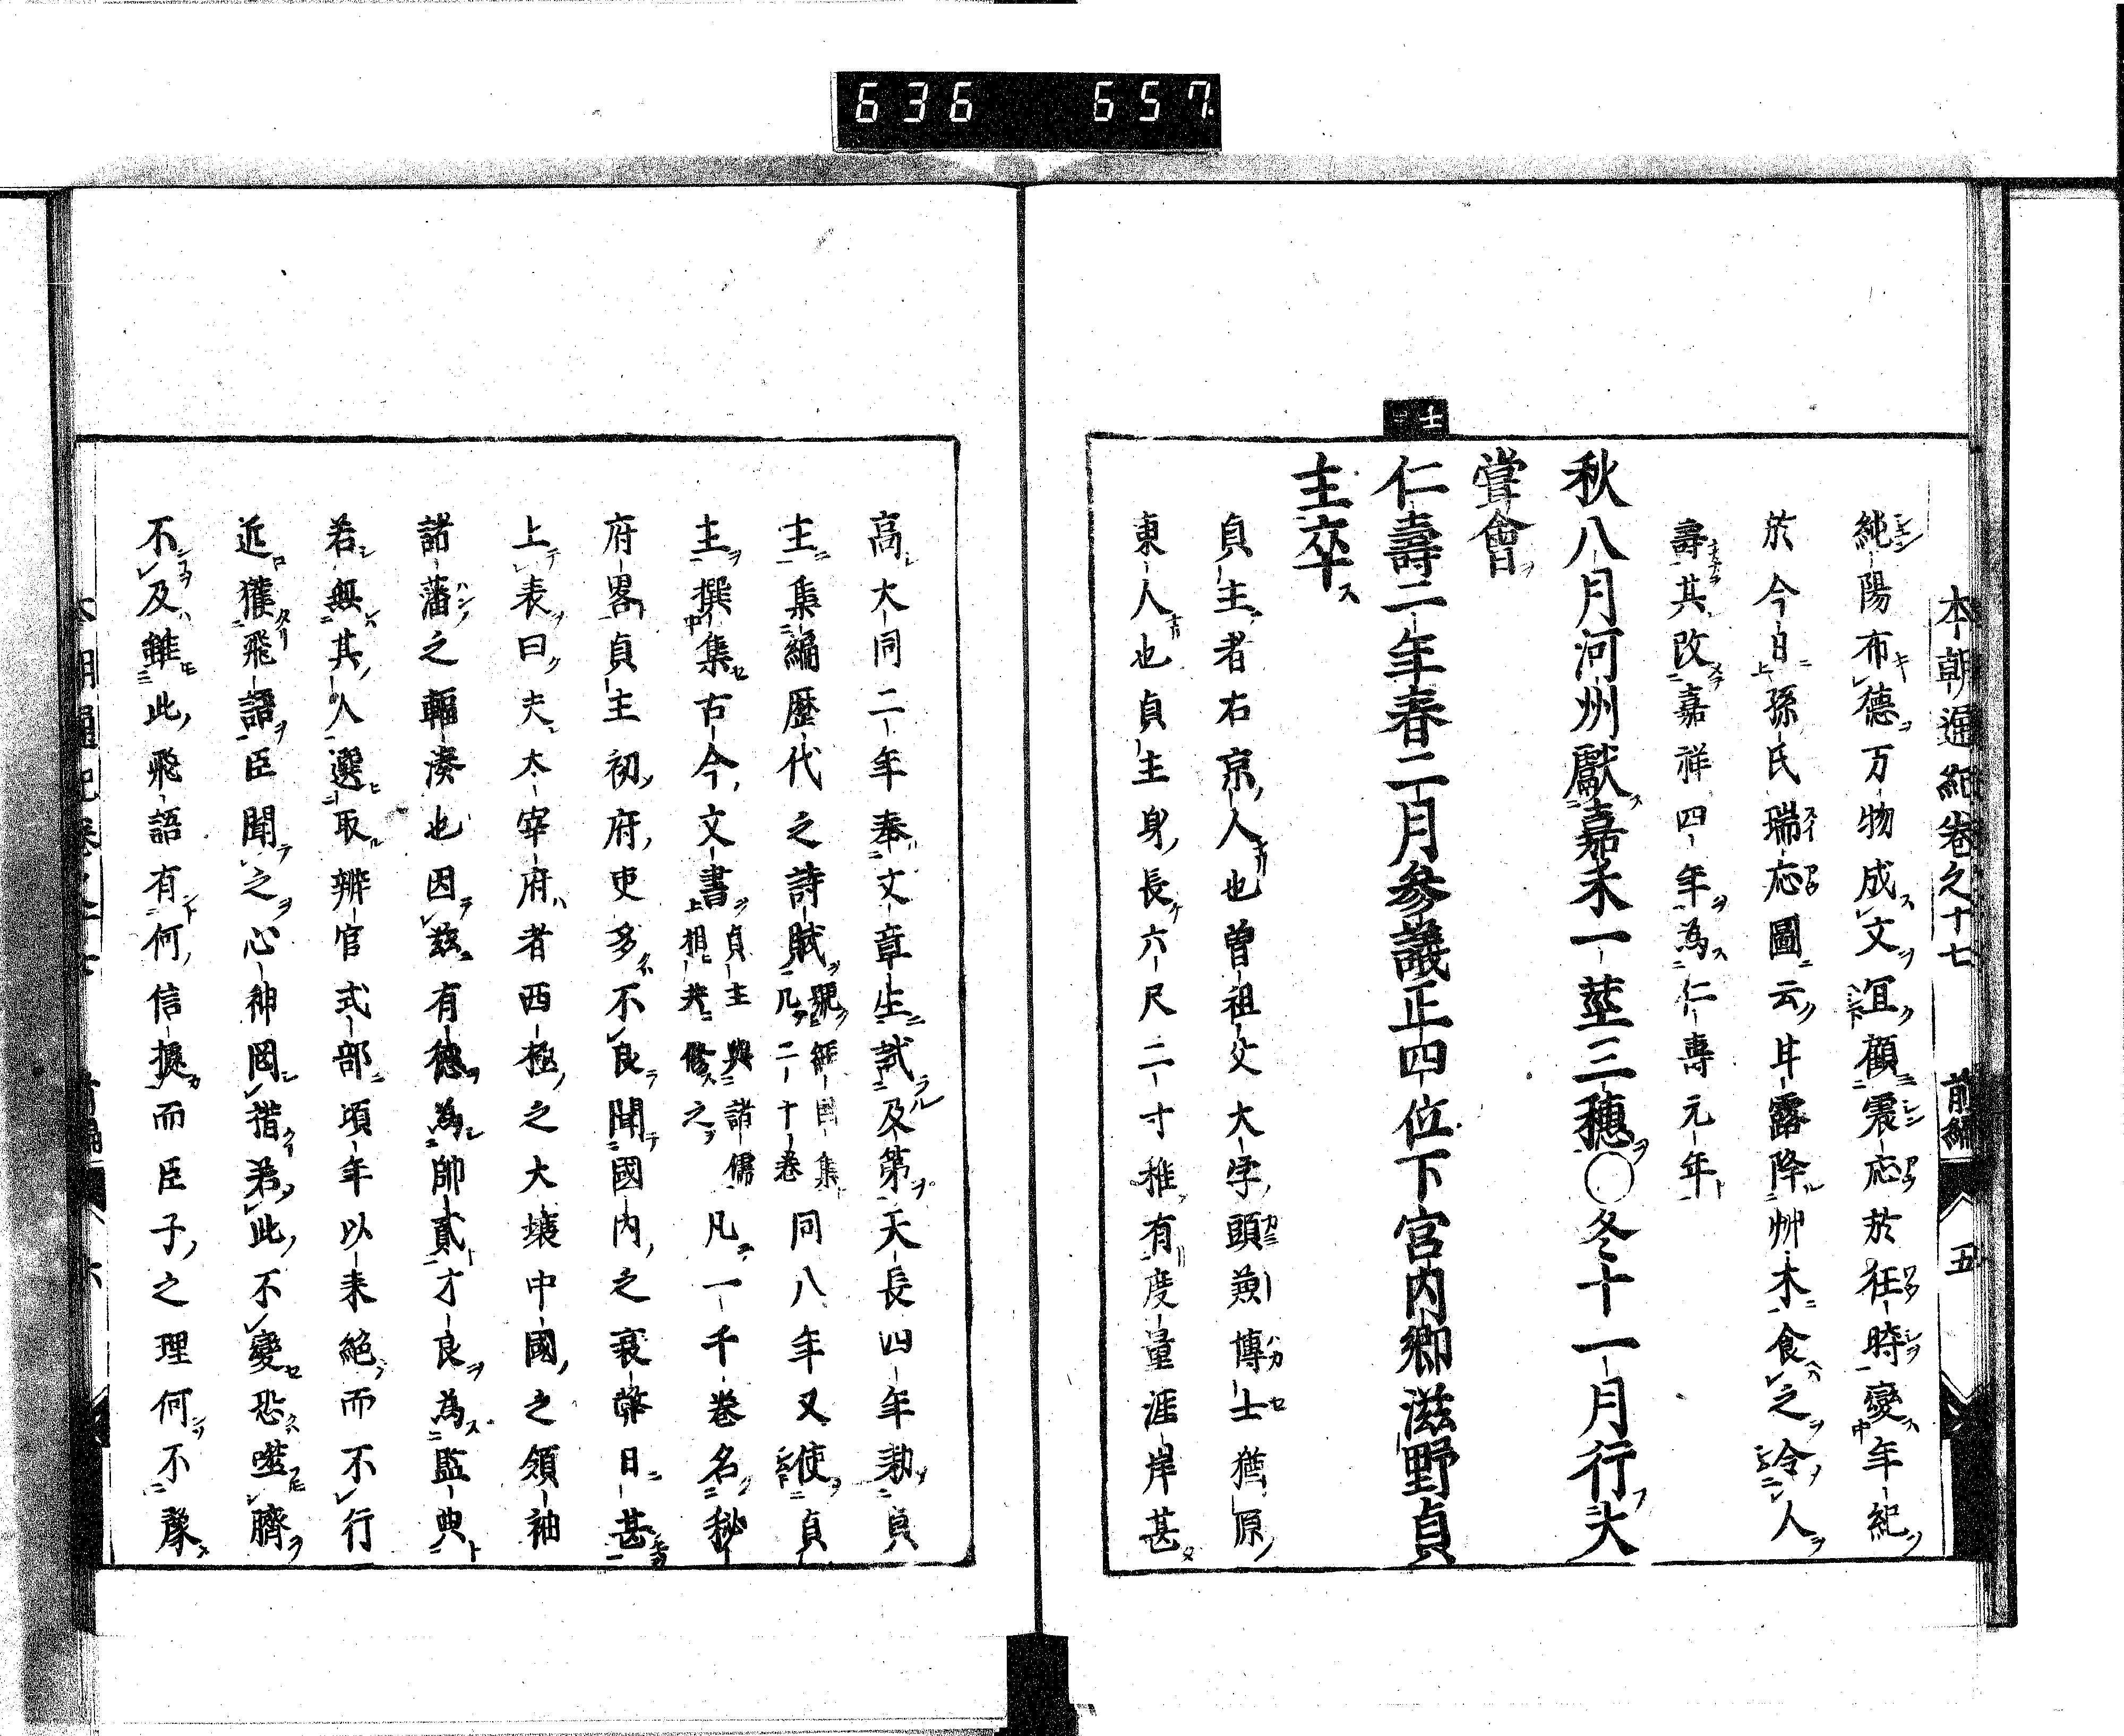 636 657
本朝通紀卷之十七 前編 五
純陽布德万物成文宜顧震応於往時變年紀
於今日孫氏瑞応圖云甘露降艸木食之令人
壽其改嘉祥四年為仁壽元年
秋八月河州獻嘉禾一莖三穗○冬十一月行大
嘗會
仁壽二年春二月參議正四位下宮内卿滋野貞
主卒
貞主者右京人也曽祖父大字頭兼博士猶原
東人也貞主身長六尺二寸稚有度量涯岸甚
高大同二年奉文章生試及第天長四年勅貞
主集編歴代之詩賦號經國集凡二十卷同八年又使貞
主撰集古今文書貞主與諸儒相共修之凡一千卷名秘
府畧貞主初府吏多不良聞國内之衰弊日甚
上表曰夫太宰府者西極之大壤中國之領袖
諸藩之輻湊也因茲有德為帥貳才良為監典
若無其人選取辨官式部頃年以来絕而不行
近獲飛語臣聞之心神罔措若此不變恐噬臍
不及雖此飛語有何信據而臣子之理何不豫